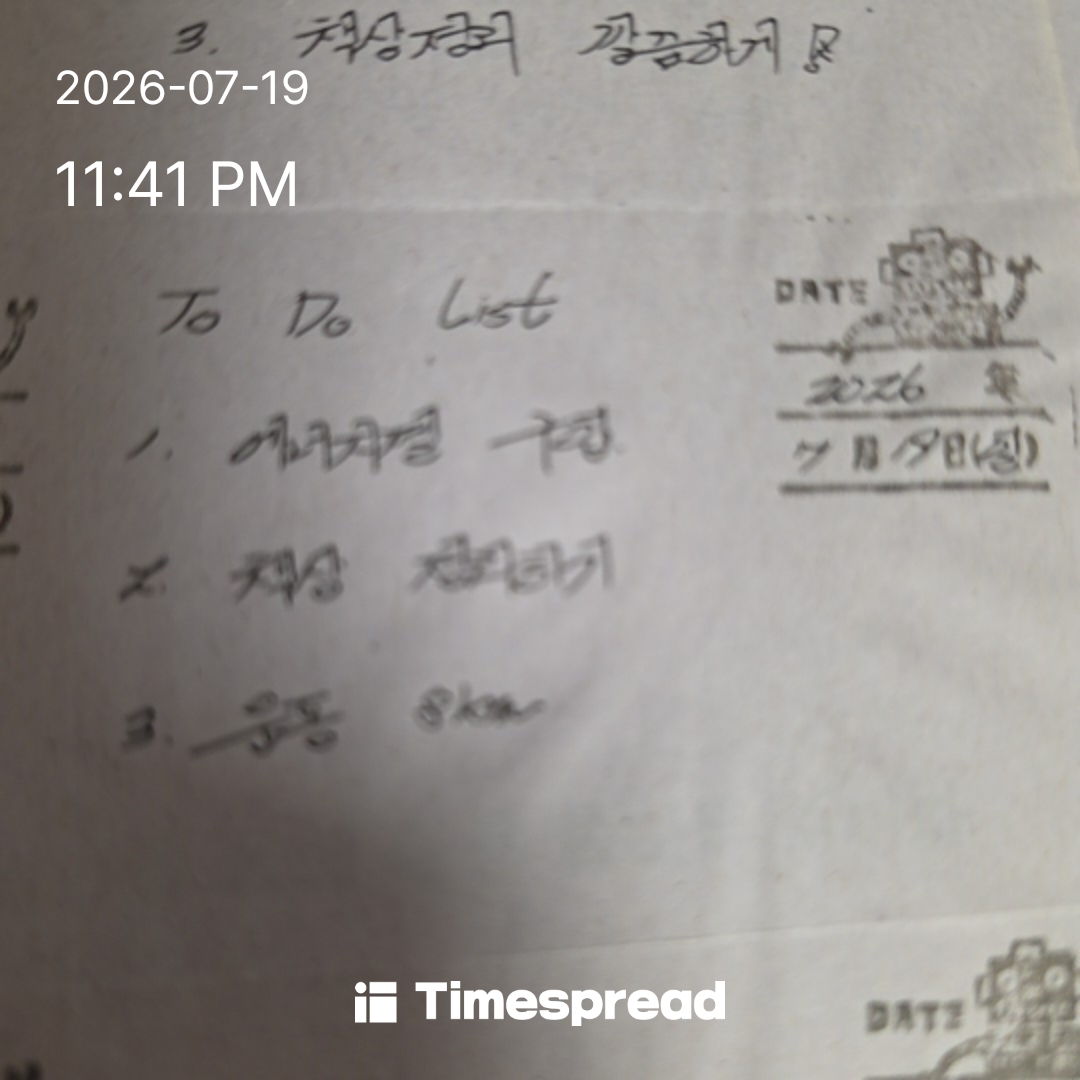 3. 책상정리 깔끔하게
2026-07-19
11:41 PM
To Do List
DATE
2026 年
7 月 19 日(일)
1. 에너지절 구입
2. 책상 정리하기
3. 운동 8km
Timespread
DATE